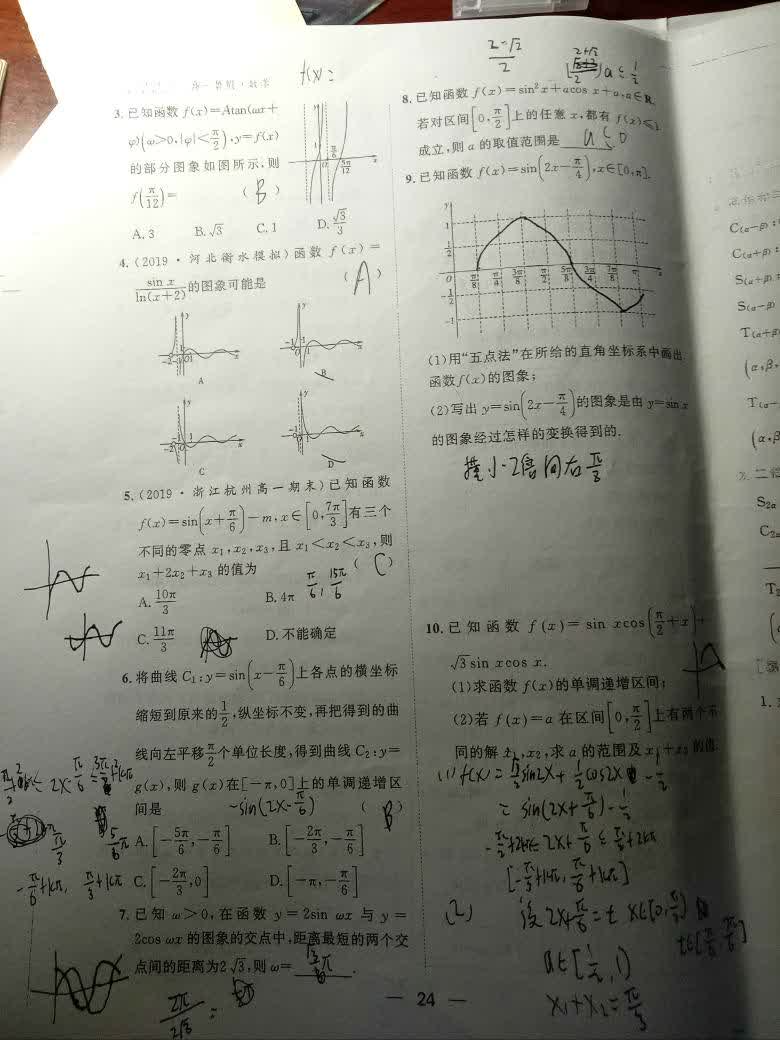 f(x)=
3.已知函数 f(x)=Atan(ωx+
φ)(ω>0,|φ|<π/2),y=f(x)
的部分图象如图所示,则
f(π/12)= ( B )
A.3 B.√3 C.1 D.√3/3
4.(2019·河北衡水模拟)函数 f(x)=
sin x/ln(x+2)的图象可能是 ( A )
A
B
C
D
5.(2019·浙江杭州高一期末)已知函数
f(x)=sin(x+π/6)-m,x∈[0,7π/3]有三个
不同的零点 x₁,x₂,x₃,且 x₁<x₂<x₃,则
x₁+2x₂+x₃ 的值为 ( C )
A.10π/3 B.4π
C.11π/3 D.不能确定
6.将曲线 C₁:y=sin(x-π/6)上各点的横坐标
缩短到原来的1/2,纵坐标不变,再把得到的曲
线向左平移π/2个单位长度,得到曲线 C₂:y=
g(x),则 g(x)在[-π,0]上的单调递增区
间是 -sin(2x-π/6) ( B )
A.[-5π/6,-π/6] B.[-2π/3,-π/6]
C.[-2π/3,0] D.[-π,-π/6]
7.已知 ω>0,在函数 y=2sin ωx 与 y=
2cos ωx 的图象的交点中,距离最短的两个交
点间的距离为2√3,则 ω=
2π/2√3 =
2-√2/2
8.已知函数 f(x)=sin²x+acos x+a,a∈R.
若对区间[0,π/2]上的任意 x,都有 f(x)≤1
成立,则 a 的取值范围是 a≤0
9.已知函数 f(x)=sin(2x-π/4),x∈[0,π].
y
1
1/2
0 π/8 π/4 3π/8 π/2 5π/8 3π/4 7π/8 π x
-1/2
-1
(1)用“五点法”在所给的直角坐标系中画出
函数f(x)的图象;
(2)写出 y=sin(2x-π/4)的图象是由 y=sin x
的图象经过怎样的变换得到的.
10.已知函数 f(x)=sin xcos(π/2+x)+
√3sin xcos x.
(1)求函数 f(x)的单调递增区间;
(2)若 f(x)=a 在区间[0,π/2]上有两个不
同的解 x₁,x₂,求 a 的范围及x₁+x₂的值.
(1) f(x)=√3/2 sin2x+1/2 cos2x-1/2
=sin(2x+π/6)-1/2
-π/2+2kπ≤2x+π/6≤π/2+2kπ
[-π/3+kπ,π/6+kπ]
(2) 设2x+π/6=t
a∈[1/2,1)
x₁+x₂=π/3
— 24 —
C(α-β):
C(α+β):
S(α+β):
S(α-β)
T(α+β)
(α,β,
T(α-
(α,β
S2α
C2α